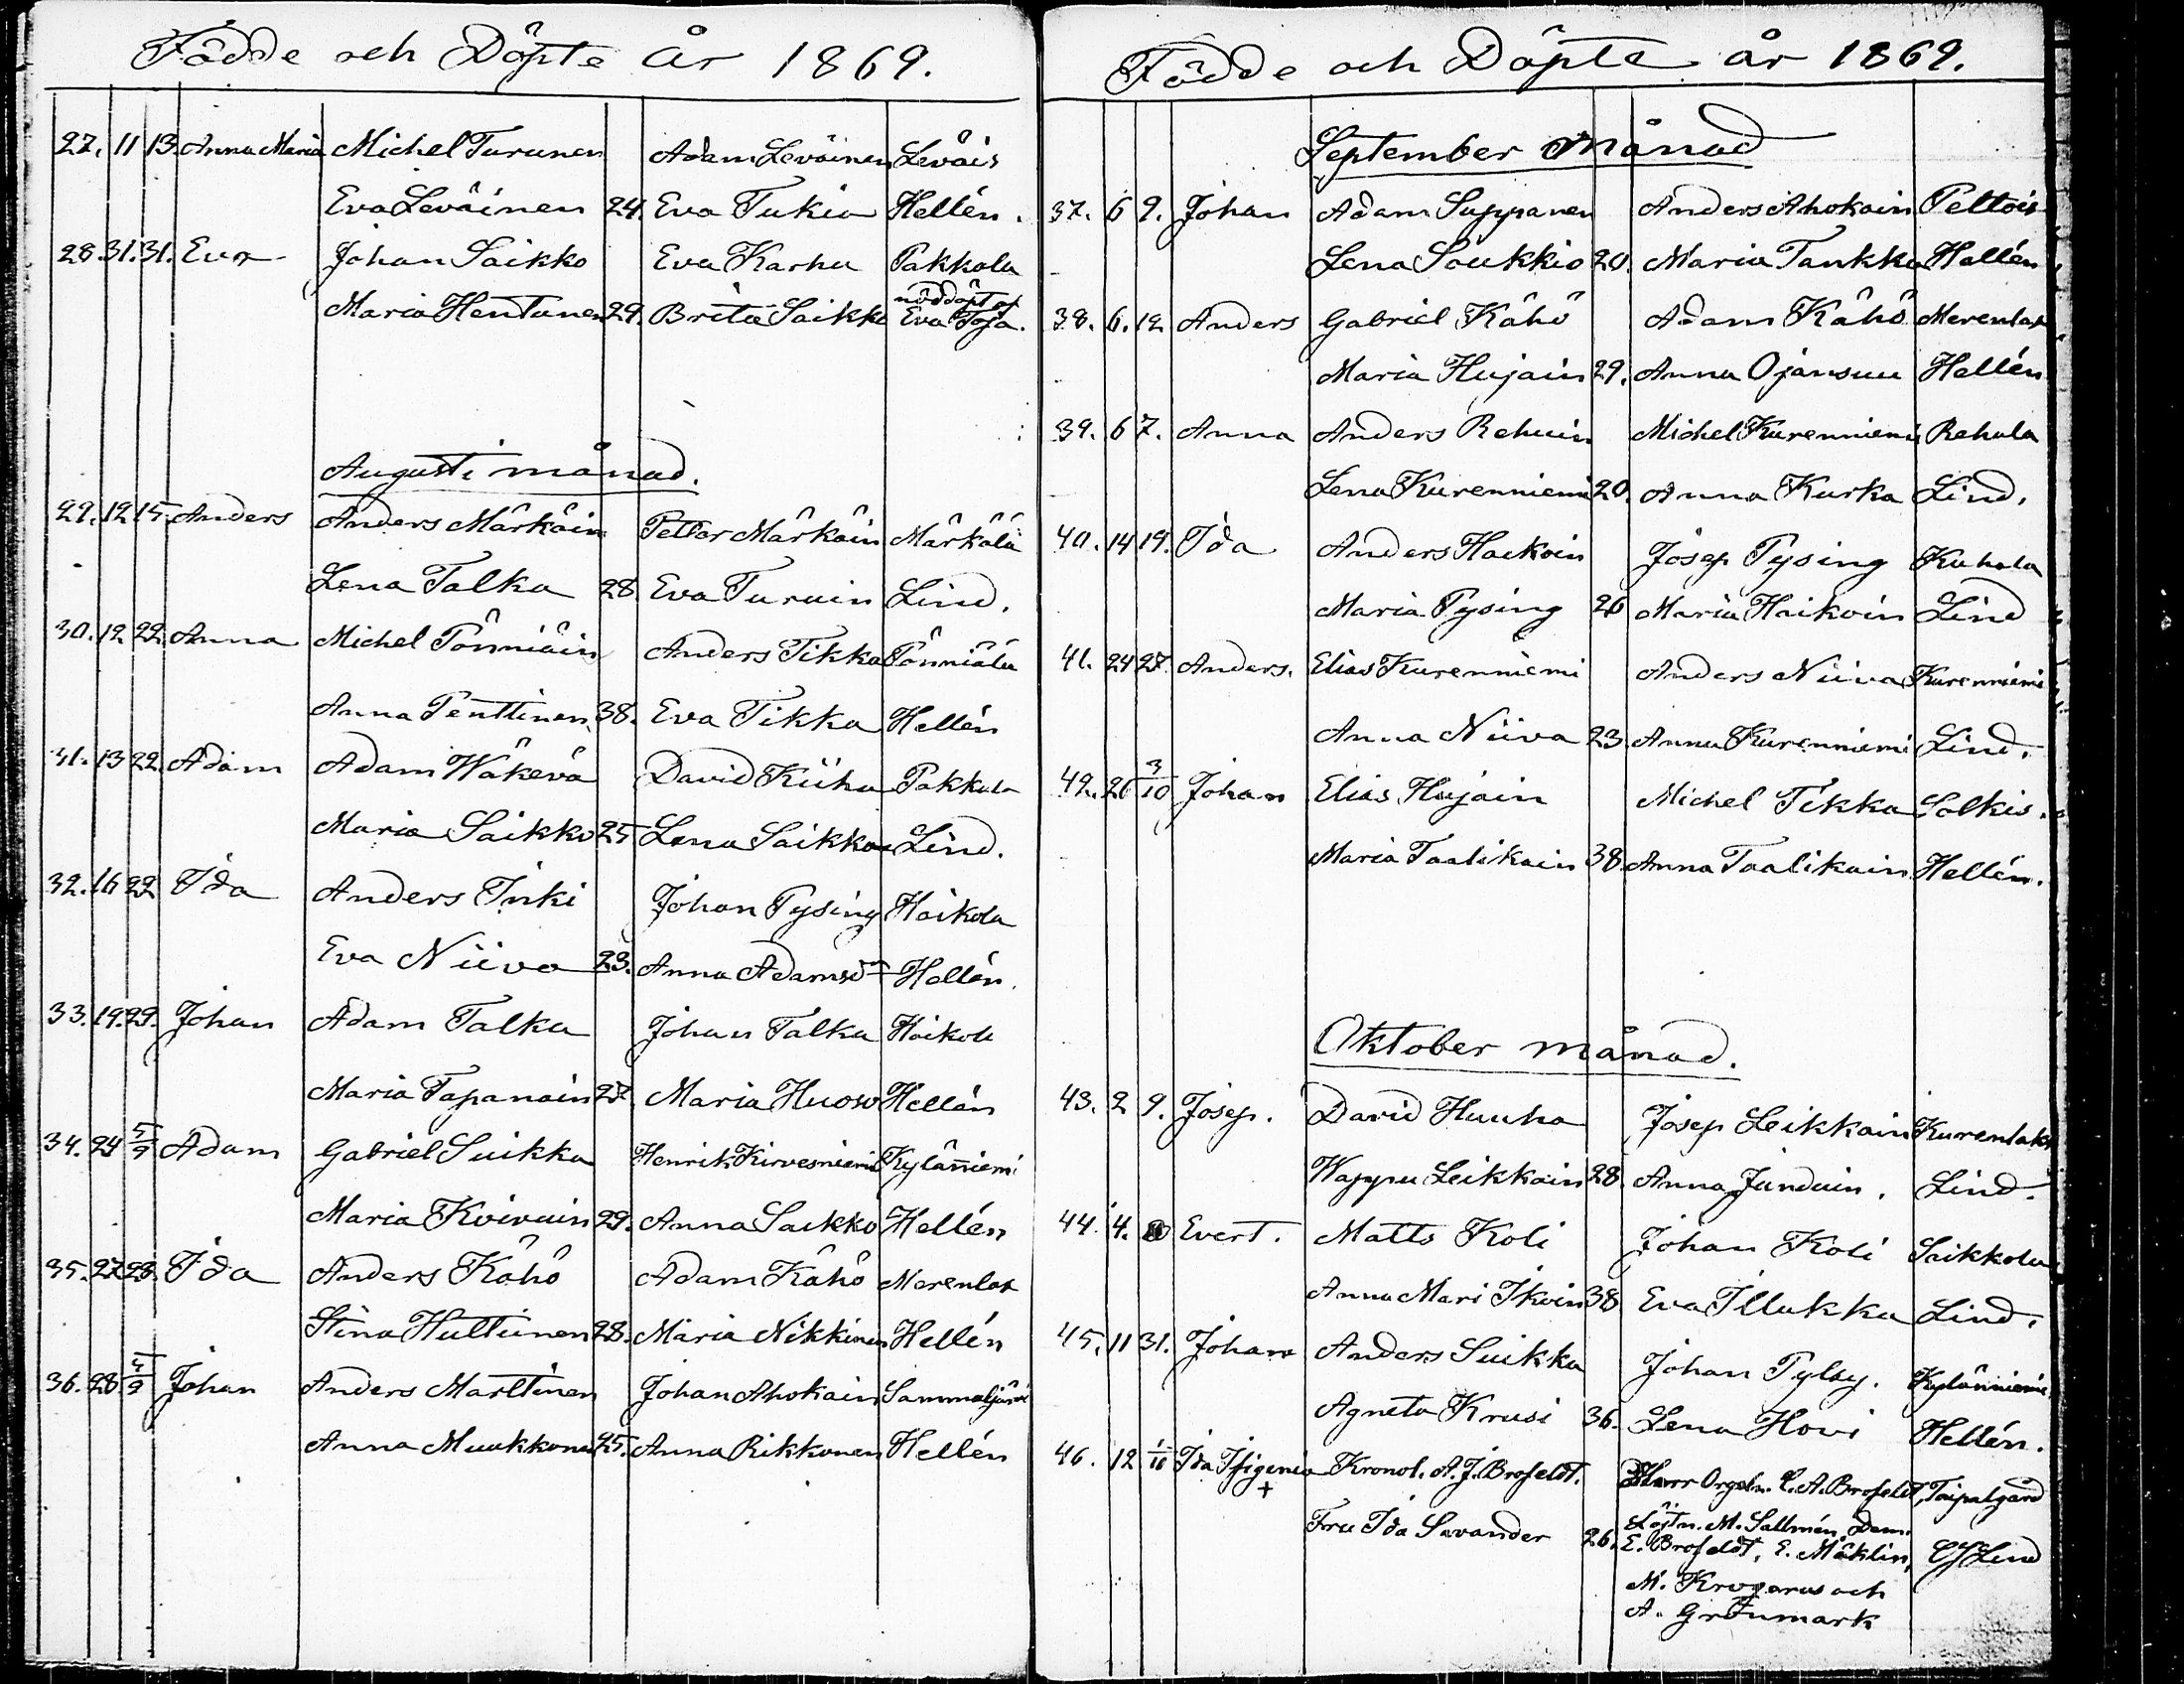 Födde och Döpte år 1869.
27. 11 13. Anna Maria Michel Turunen Adam Leväinen Leväis
Eva Leväinen 24. Eva Tukia Hellén.
28. 31. 31. Eva Johan Saikko Eva Karhu Pakkola
Maria Hentunen 29. Brita Saikko nöddöpt af Eva Toja.
Augusti månad.
29. 12 15. Anders Anders Märkäin Petter Märkäin Märkälä
Lena Talka 28. Eva Turuin Lind.
30. 12 22. Anna Michel Pönniäin Anders Tikka Pönniälä
Anna Penttinen 38. Eva Tikka Hellén
31. 13 22. Adam Adam Wäkevä David Kiiha Pakkola
Maria Saikko 25 Lena Saikko Lind.
32. 16 22 Ida Anders Inki Johan Pysing Haikola
Eva Niiva 23. Anna Adamsdr Hellén.
33. 19. 29. Johan Adam Talka Johan Talka Haikola
Maria Tapanain 27. Maria Huoso Hellén
34. 24 5/9 Adam Gabriel Suikka Henrik Kirvesniemi Kylänniemi
Maria Koivuin 29. Anna Saikko Hellén
35. 27 28. Ida Anders Kähö Adam Kähö Merenlax
Stina Hultiinen 28. Maria Nikkinen Hellén
36. 28 5/9 Johan Anders Marttinen Johan Ahokain Sammaljärvi
Anna Muukkonen 25. Anna Rikkonen Hellén
Födde och Döpte år 1869.
September månad
37. 6 9. Johan Adam Suppanen Anders Ahokain Peltois
Lena Soukkio 20. Maria Tankka Hellén
38. 6. 12 Anders Gabriel Kähö Adam Kähö Merenlax
Maria Hujain 29. Anna Ojansuu Hellén
39. 6 7. Anna Anders Rehuin Michel Kurenniemi Rehula
Lena Kurenniemi 20. Anna Kurka Lind.
40. 14 19. Ida Anders Haikoin Josep Pysing Kuhala
Maria Pysing 26 Maria Haikoin Lind
41. 24 27. Anders. Elias Kurenniemi Anders Niiva Kurenniemi
Anna Niiva 23. Anna Kurenniemi Lind.
42. 26 3/10 Johan Elias Hujain Michel Tikka Solkis.
Maria Taalikain 38. Anna Taalikain Hellén.
Oktober månad.
43. 2 9. Josep. David Huuha Josep Leikkain Kurenlaks
Wappu Leikkain 28. Anna Junduin. Lind.
44. 4. Evert. Matts Koli Johan Koli Saikkola
Anna Mari Ikoin 38 Eva Illukka Lind.
45. 11 31. Johan Anders Suikka Johan Pylsy. Kylänniemi.
Agneta Krusi 36. Lena Hovi Hellén.
46. 12 1/10 Ida Ifigenia + Kronol. A. J. Brofeldt. Herr Orgeln. C. A. Brofeldt, Taipalgård
Fru Ida Savander 26. Löjtn. M. Sallmén, Dem.
E. Brofeldt, E. Mäklin, Lind
M. Krogerus och
A. Grönmark